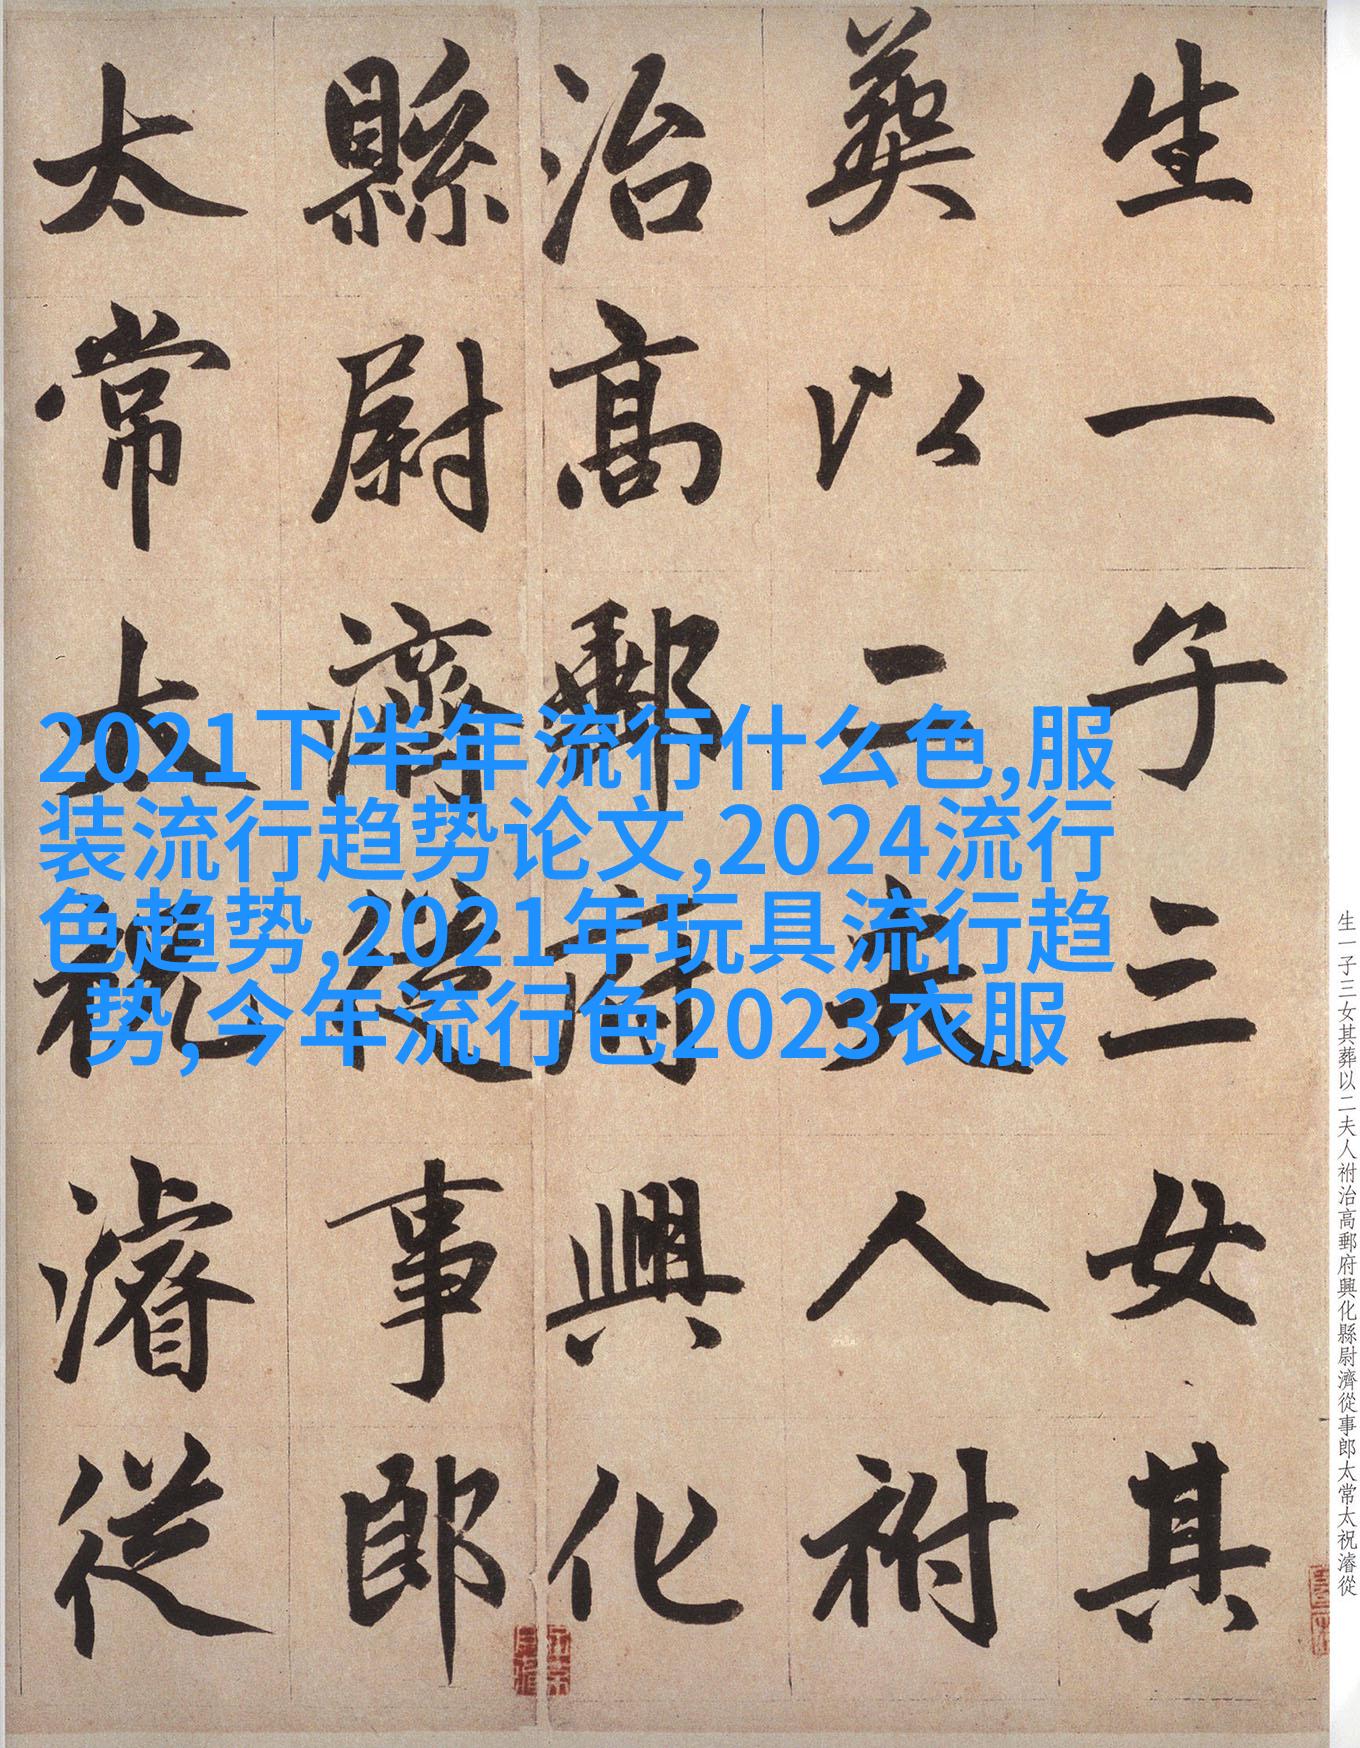 生一子三女其
葬以二夫人祔
治高郵府興化
縣尉濟從事郎
太常太祝濬從
2021下半年流行什么色,服
装流行趋势论文,2024流行
色趋势,2021年玩具流行趋
势,今年流行色2023衣服
生一子三女其葬以二夫人祔治高郵府興化縣尉濟從事郎太常太祝濬從